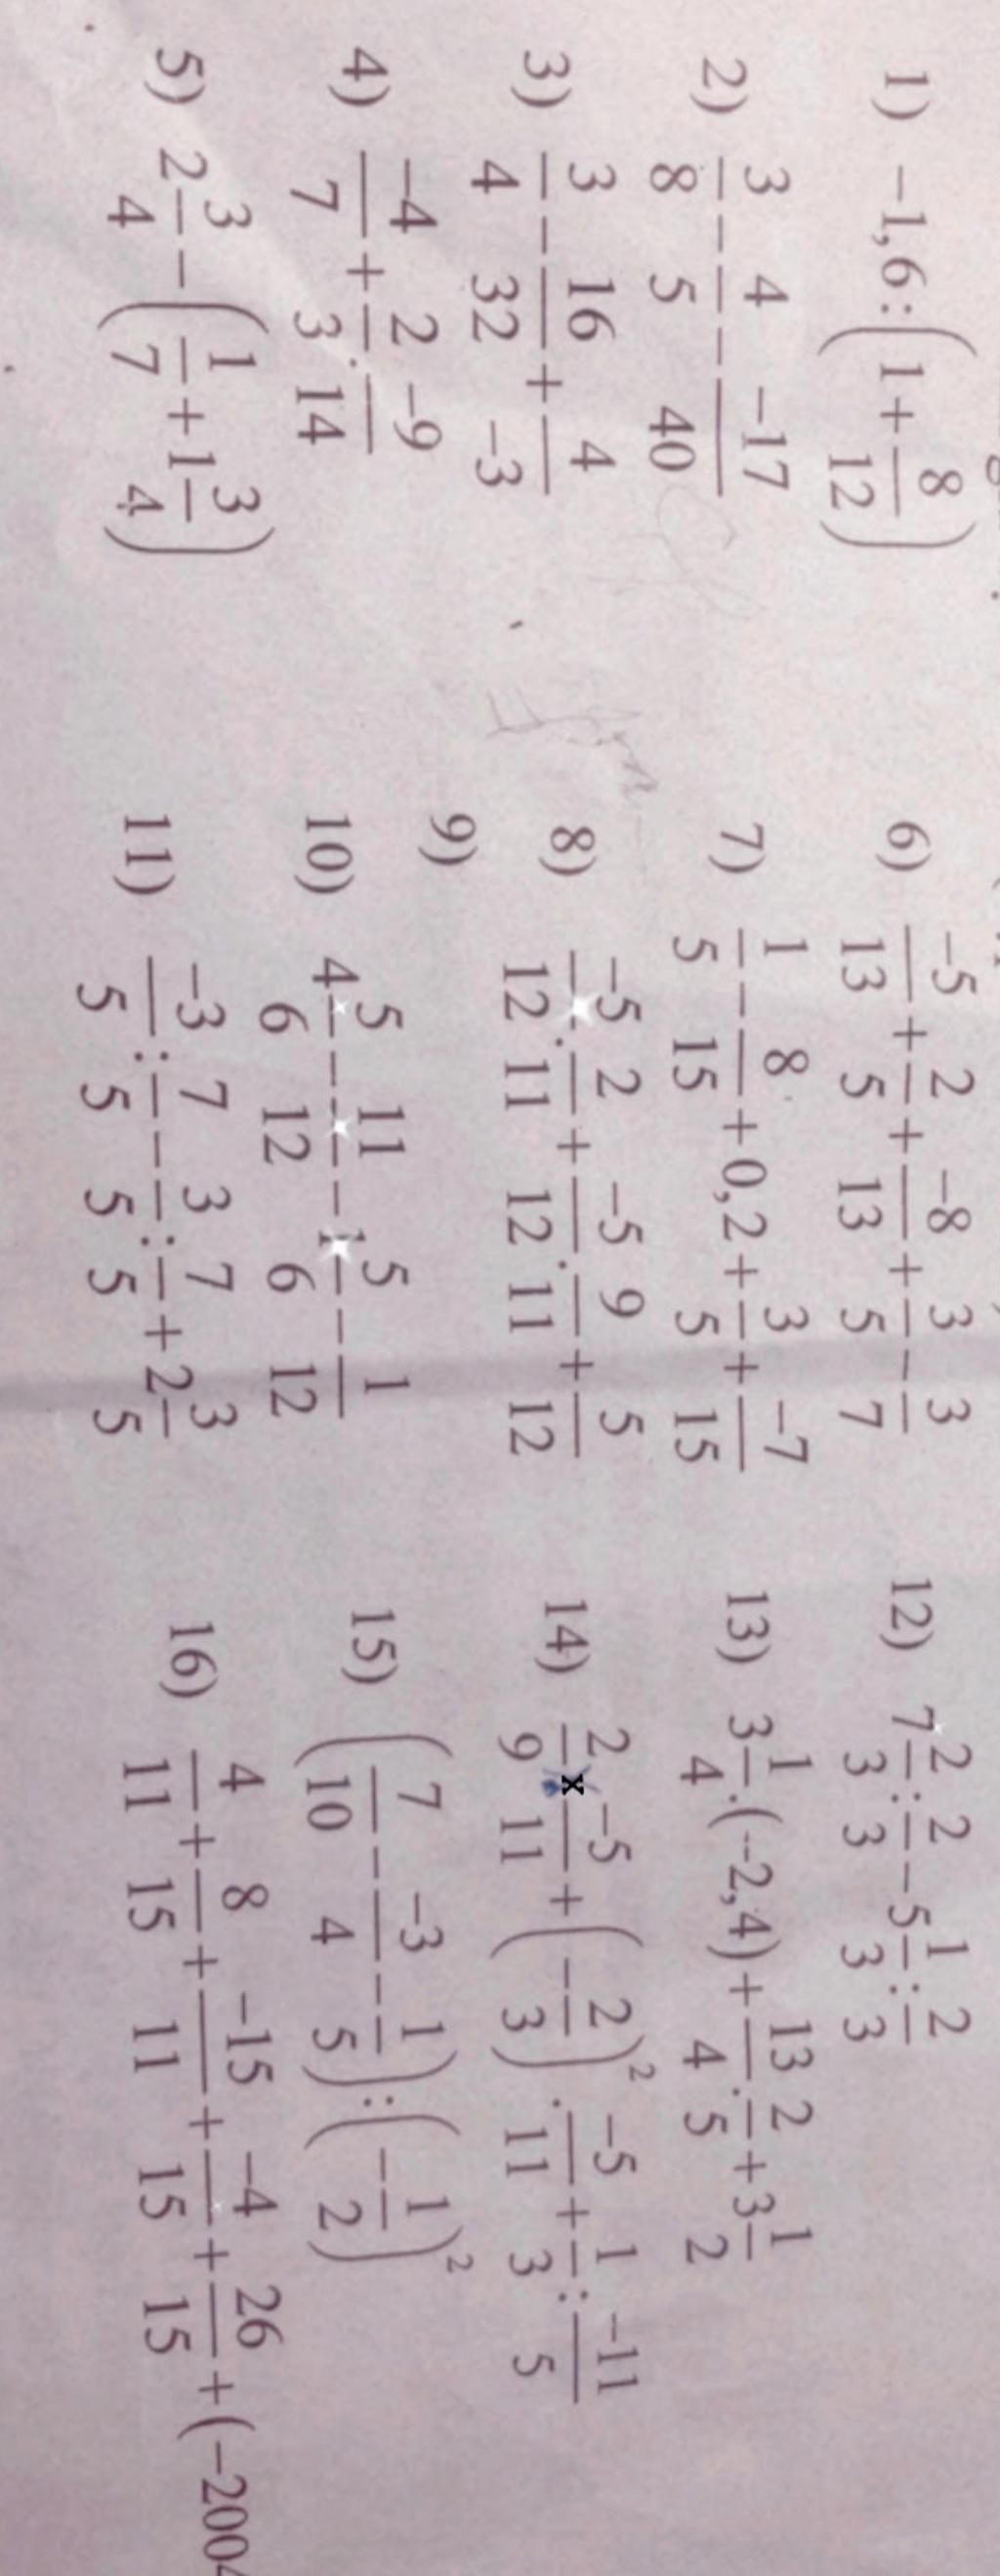 1) -1,6:(1+8/12)
2) 3/8 - 4/5 - -17/40
3) 3/4 - 16/32 + 4/-3
4) -4/7 + 2/3 . -9/14
5) 2 3/4 - (1/7 + 1 3/4)
6) -5/13 + 2/5 + -8/13 + 3/5 - 3/7
7) 1/5 - 8/15 + 0,2 + 3/5 + -7/15
8) -5/12 . 2/11 + -5/12 . 9/11 + 5/12
9)
10) 4 5/6 - 11/12 - 5/6 - 1/12
11) -3/5 : 7/5 - 3/5 : 7/5 + 2 3/5
12) 7 2/3 : 2/3 - 5 1/3 : 2/3
13) 3 1/4 . (-2,4) + 13/4 . 2/5 + 3 1/2
14) 2/9 x -5/11 + (-2/3)² . -5/11 + 1/3 : -11/5
15) (7/10 - -3/4 - 1/5) : (-1/2)²
16) 4/11 + 8/15 + -15/11 + -4/15 + 26/15 + (-2004